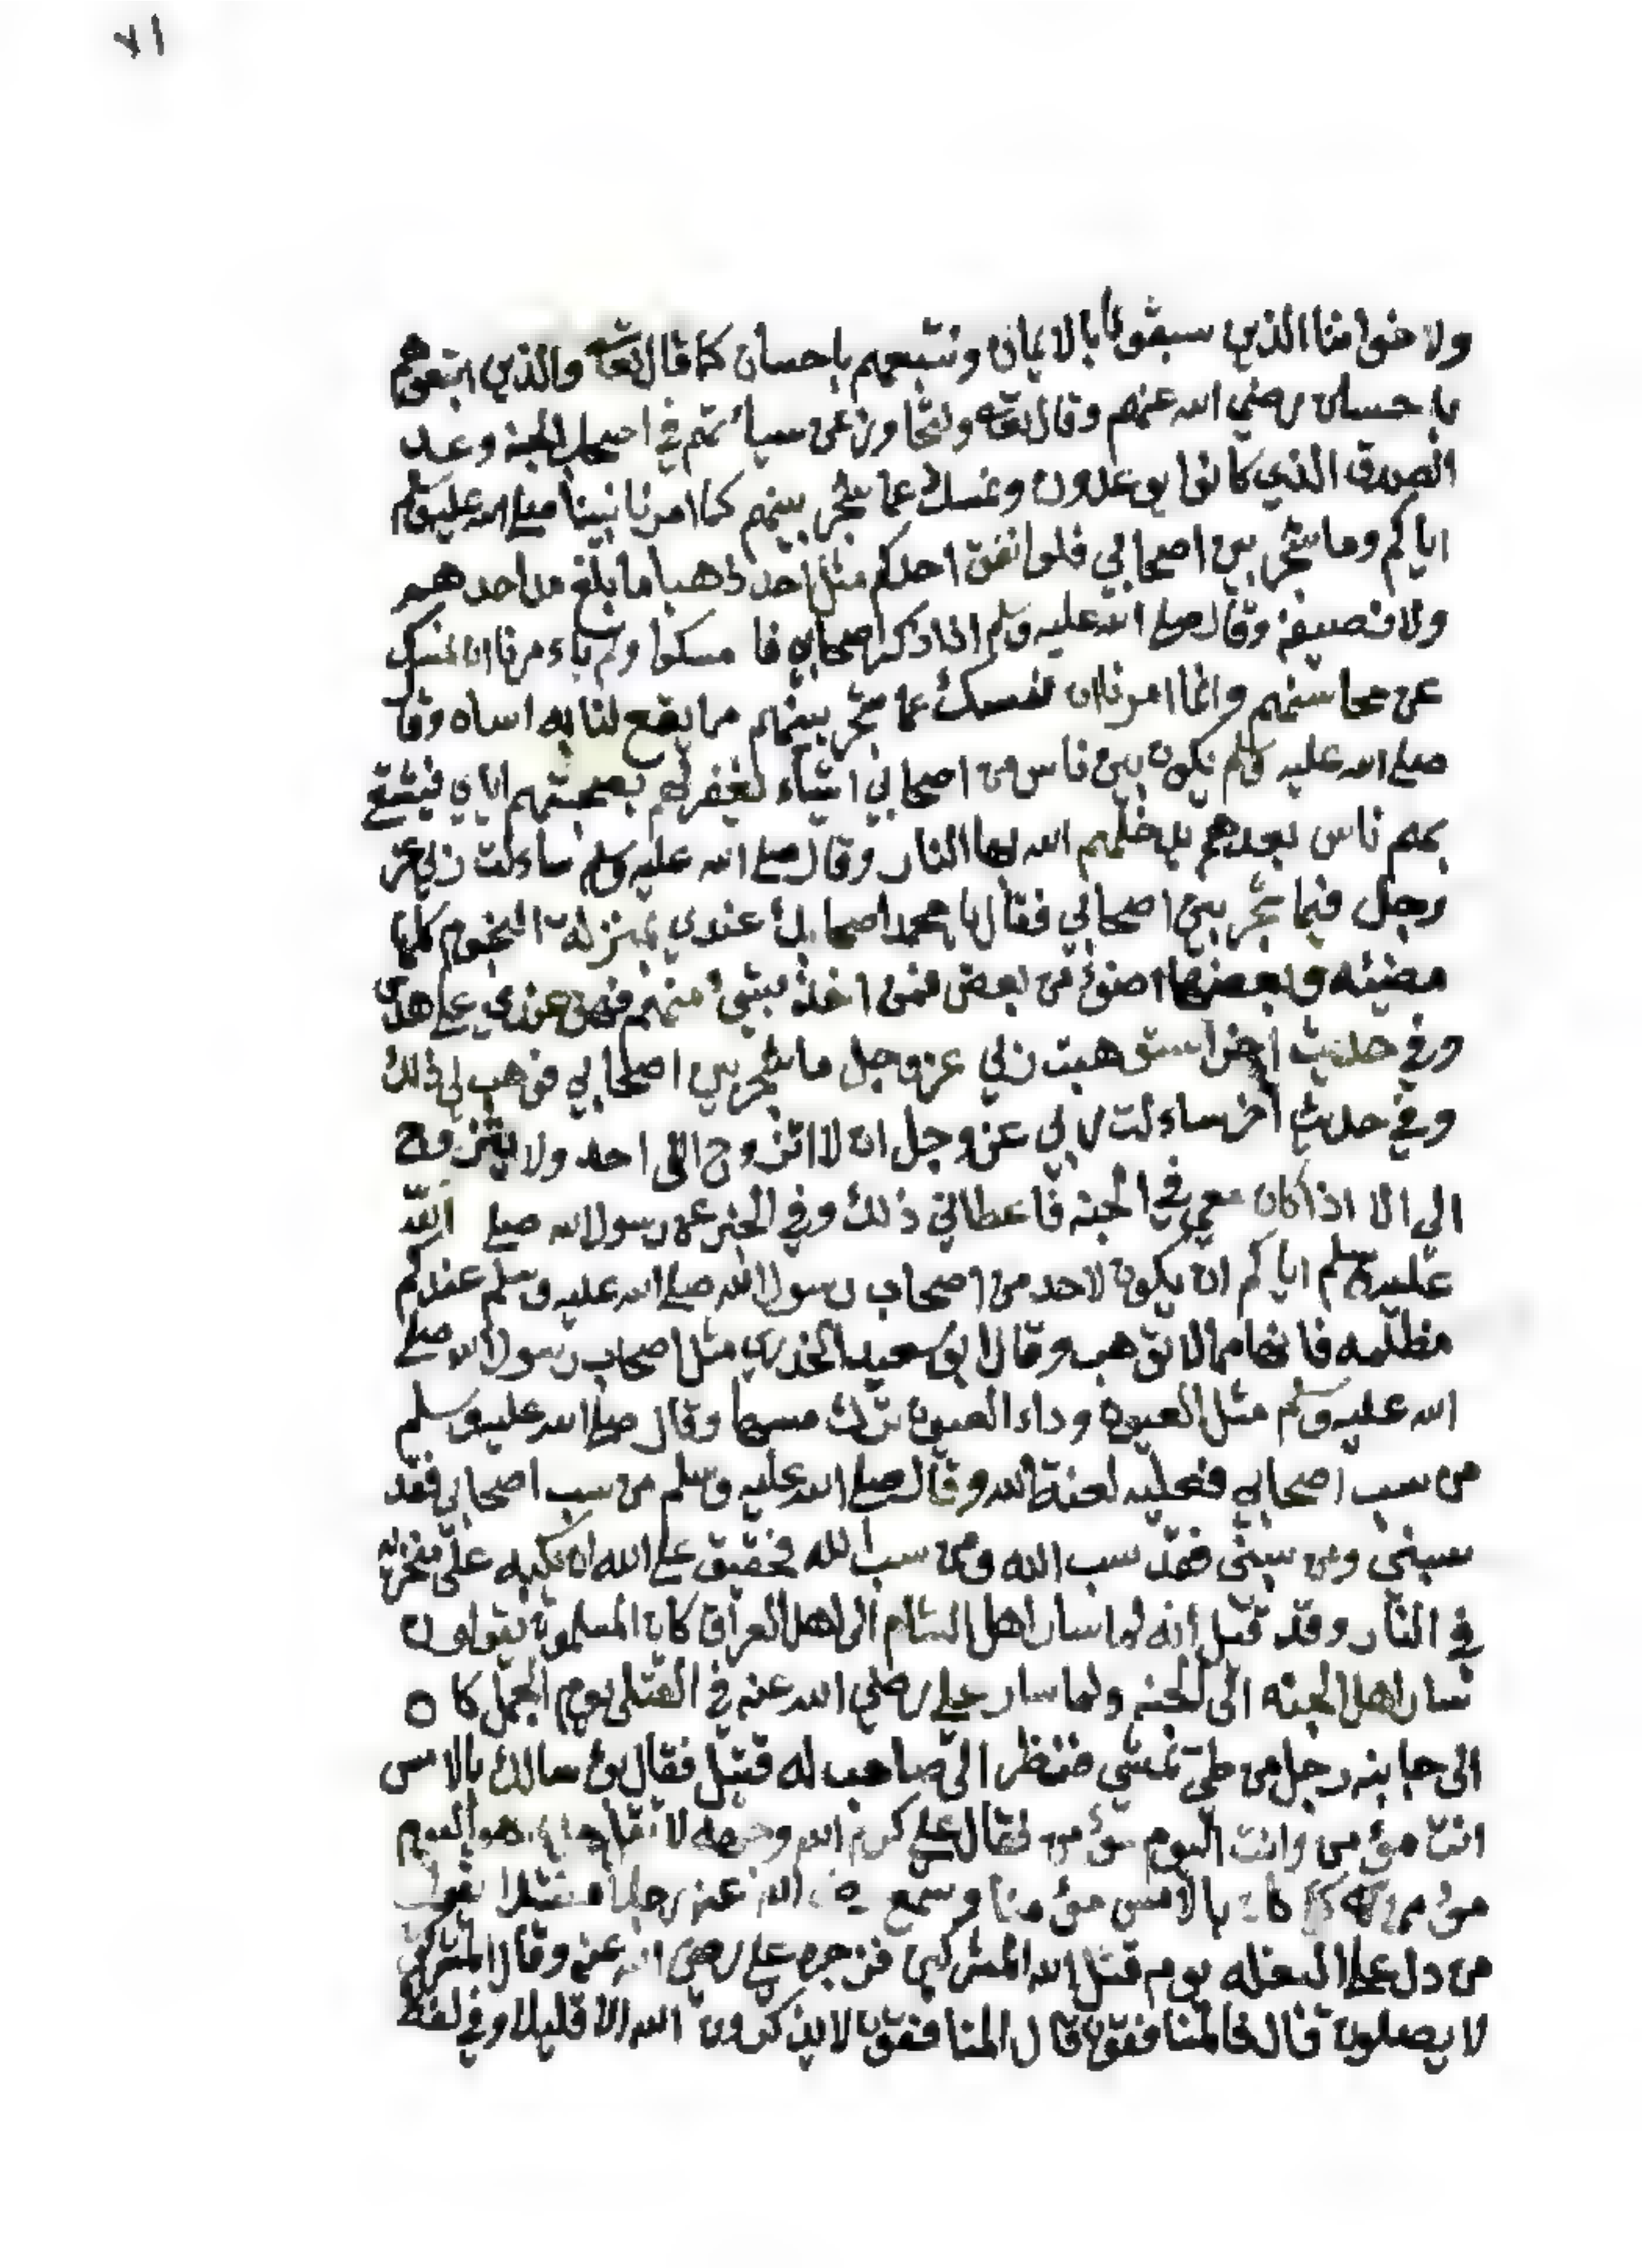 ٧١
ولاخواننا الذين سبقونا بالايمان ونتبعهم باحسان كما قال تعالى والذين اتبعوهم
باحسان رضي الله عنهم وقال تعالى ونتجاوز عن سيائتهم في اصحاب الجنة وعد
الصدق الذي كانوا يوعدون ونمسك عما شجر بينهم كما امرنا نبينا صلى الله عليه وسلم
اياكم وما شجر بين اصحابي فلو انفق احدكم مثل احد ذهبا ما بلغ مد احدهم
ولا نصيفه وقال صلى الله عليه وسلم اذا ذكر اصحابي فا مسكوا ولم ياءمرنا ان نمسك
عن محاسنهم وانما امرنا ان نمسك عما شجر بينهم ما يقع لنا به اساه وقال
صلى الله عليه وسلم يكون بين ناس من اصحابي اشياء تغفر لهم بصحبتهم اياي فيتشبع
بهم ناس بعدهم يدخلهم الله بها النار وقال صلى الله عليه وسلم ساءلت ربي عز
وجل فيما شجر بين اصحابي فقال يا محمد اصحابك عندي بمنزلة النجوم كلها
مضيئه وبعضها اضوء من بعض فمن اخذ بشيء منهم فهو عندي على هدى
وفي حديث اخر استوهبت ربي عز وجل ما شجر بين اصحابي فوهب لي ذلك
وفي حديث اخر ساءلت ربي عز وجل ان لا اتزوج الى احد ولا يتزوج
الى الا اذا كان معي في الجنة فاعطاني ذلك وفي الخبر عن رسول الله صلى الله
عليه وسلم اياكم ان يكون لاحد من اصحاب رسول الله صلى الله عليه وسلم عندكم
مظلمه فانها مما لا توهب وقال ابو سعيد الخدري مثل اصحاب رسول الله صلى
الله عليه وسلم مثل العيون ودواء العيون ترك مسها وقال صلى الله عليه وسلم
من سب اصحابي فعليه لعنة الله وقال صلى الله عليه وسلم من سب اصحابي فقد
سبني ومن سبني فقد سب الله ومن سب الله فحقيق على الله ان يكبه على منخريه
في النار وقد قيل انه لما سار اهل الشام الى اهل العراق كان المسلمون يقولون
سار اهل الجنه الى الجنه ولما سار علي رضي الله عنه في القتلى يوم الجمل كان
الى جانبه رجل من طي يمشي فنظر الى صاحب له قتيل فقال بالامس
انت مؤمن وانت اليوم مؤمن فقال علي كرم الله وجهه لا تقل هو اليوم
مؤمن كما كان بالامس مؤمنا وسمع الله عنه رجلا يقول
من دل على البغله يوم قتل الله المشركين فزجره علي رضي الله عنه وقال المشركين
لا يصلون قال فالمنافقون قال المنافقون لا يذكرون الله الا قليلا وفي لفظ